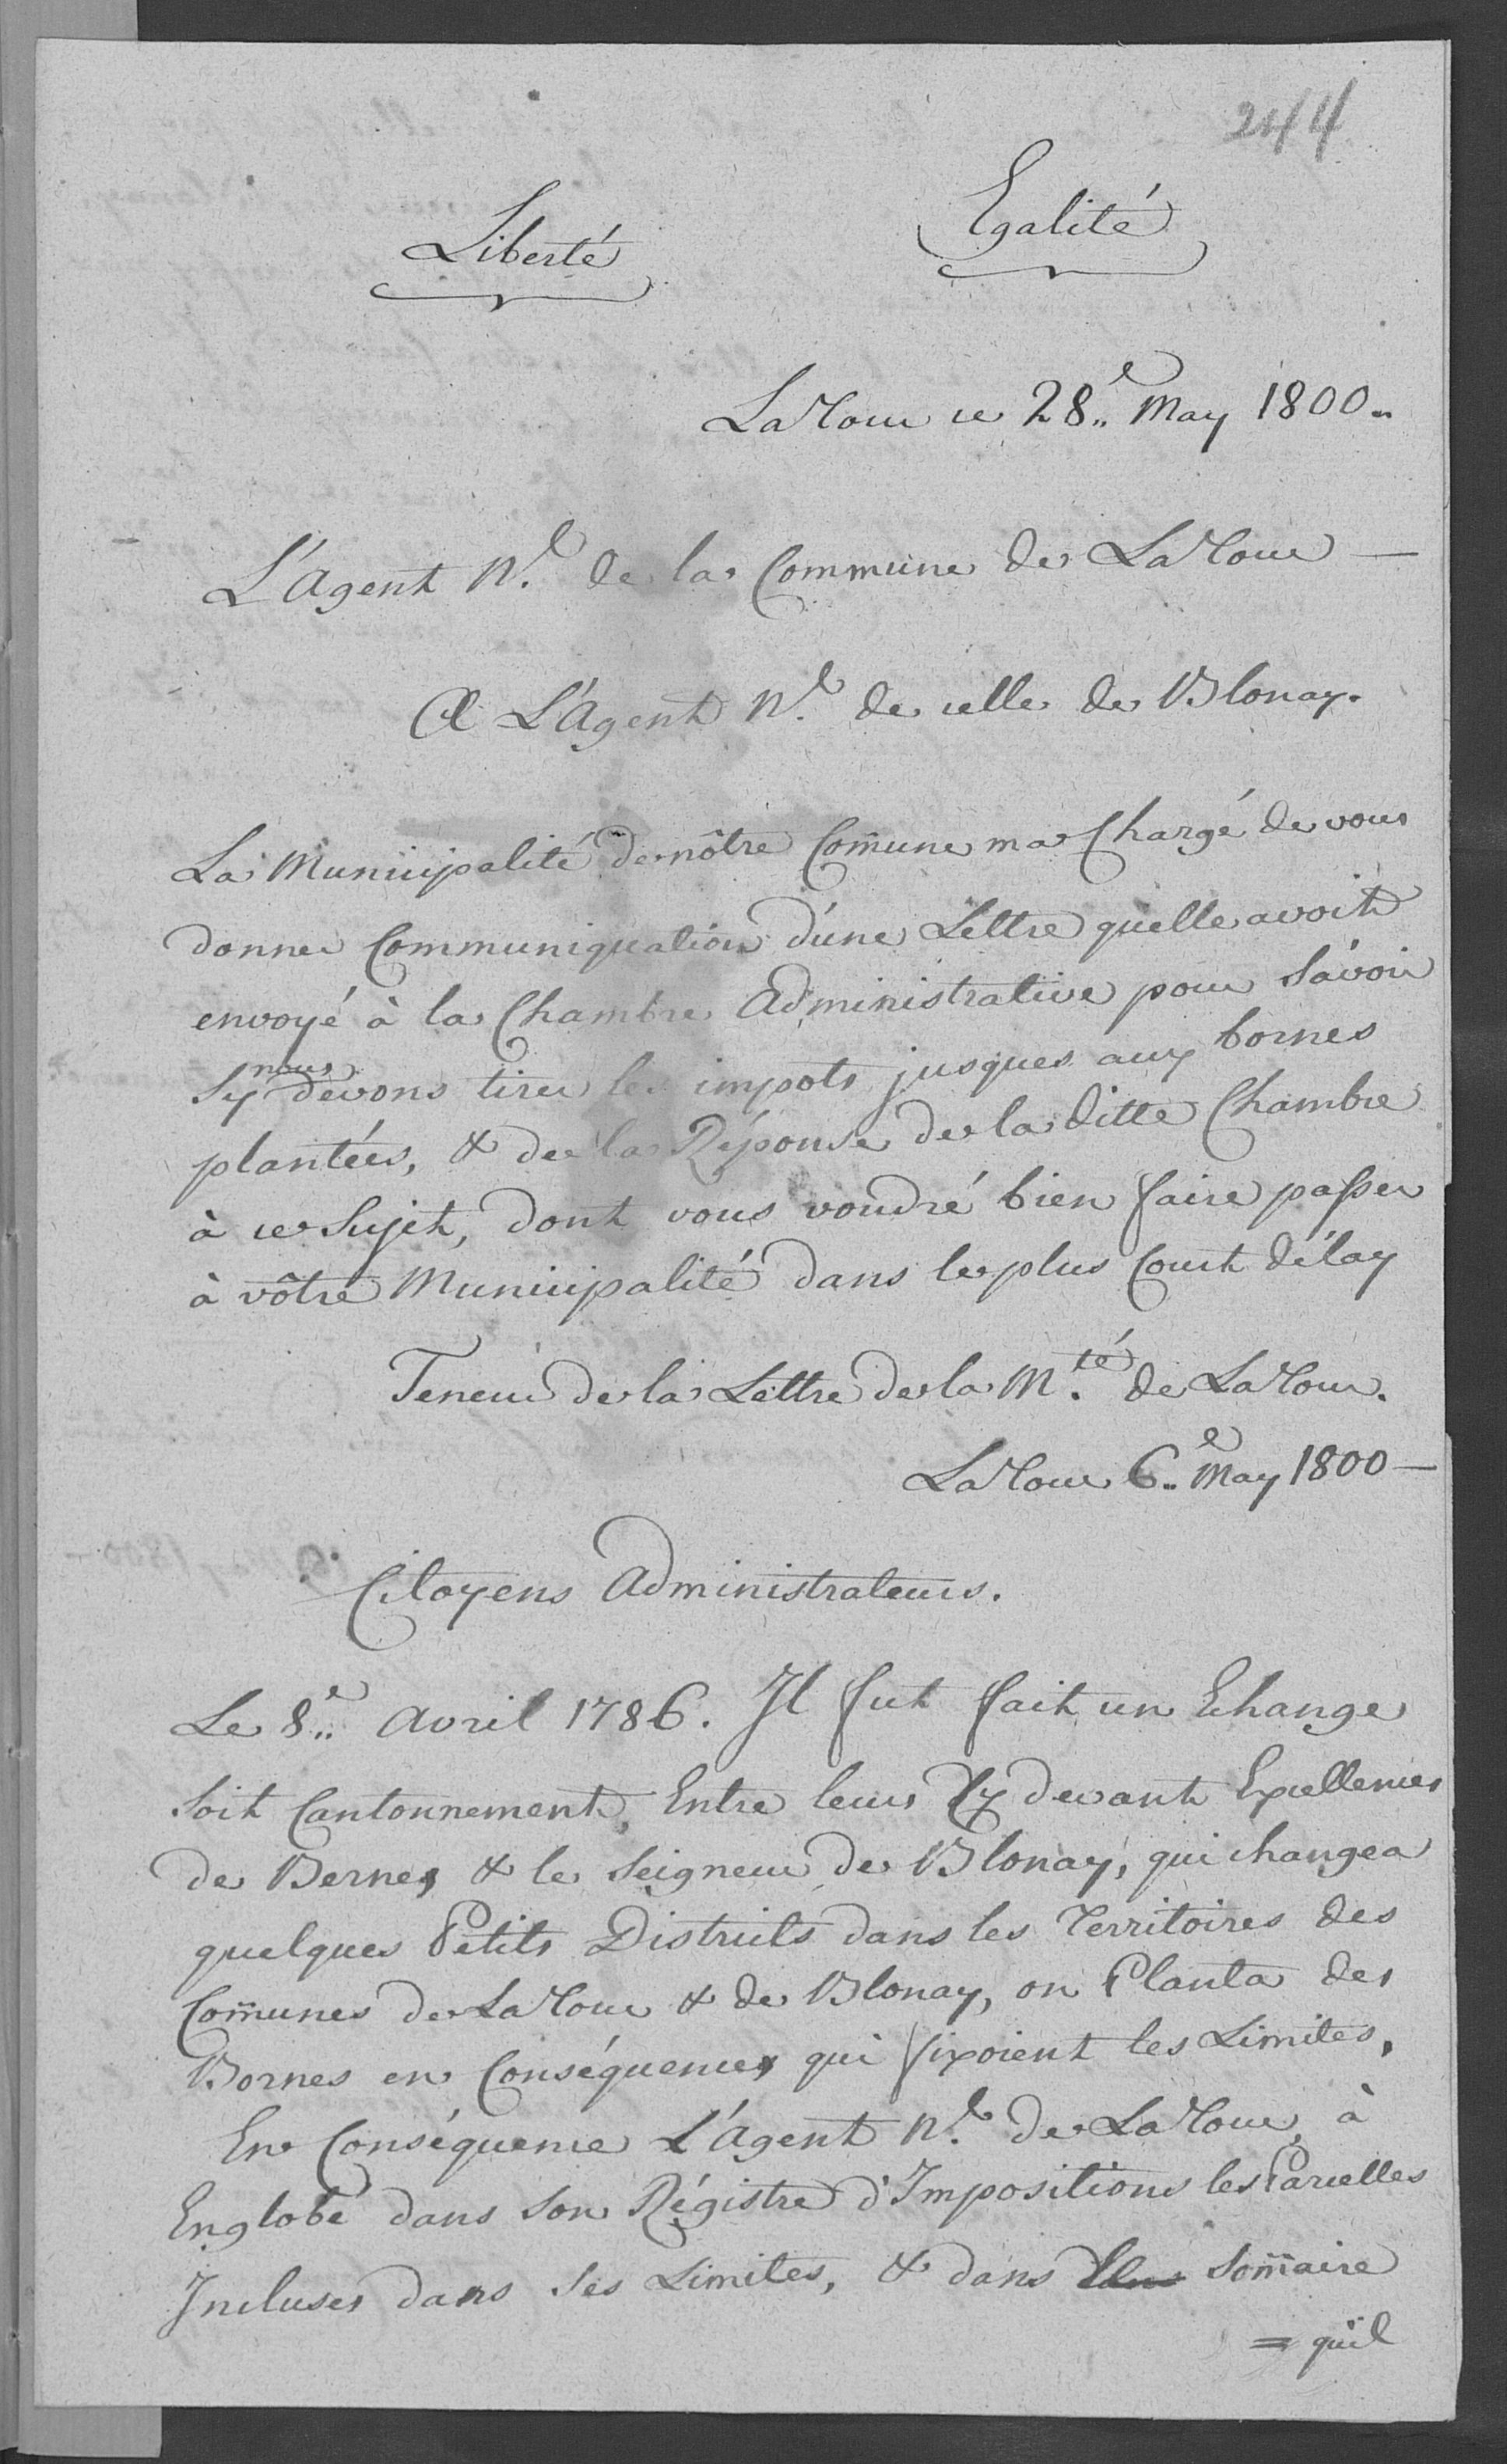 244
Liberté
Egalité
LaTour ce 28.e May 1800.
L'Agent N.l de la Commune de LaTour —
A L'Agent N.l de celle de Blonay.
La Municipalité de nôtre Com̄une ma Chargé de vous
donner Communiquation d'une Lettre quelle avoit
envoyé à la Chambre Administrative pour Sávoir
Sy nous devons tirer les impots jusques aux bornes
plantées, & de la Réponse de la ditte Chambre
à ce Sujet, dont vous voudré bien faire passer
à vôtre Municipalité dans le plus Court délay
Teneur de la Lettre de la M.té de LaTour.
LaTour 6.e May 1800 —
Citoyens Administrateurs.
Le 8.e Avril 1786. Il fut fait un Echange
Soit Cantonnement, Entre leurs Cy devant Excellences
de Berne, & le Seigneur de Blonay, qui changea
quelques Petits Districts dans les Territoires des
Com̄unes de LaTour & de Blonay, on Planta des
Bornes en Conséquence qui fixoient les Limites,
En Conséquence L'Agent N.l de LaTour, à
Englobé dans son Régistre d'Impositions les Parcelles
Incluses dans ses Limites, & dans Som̄aire
= qu'il